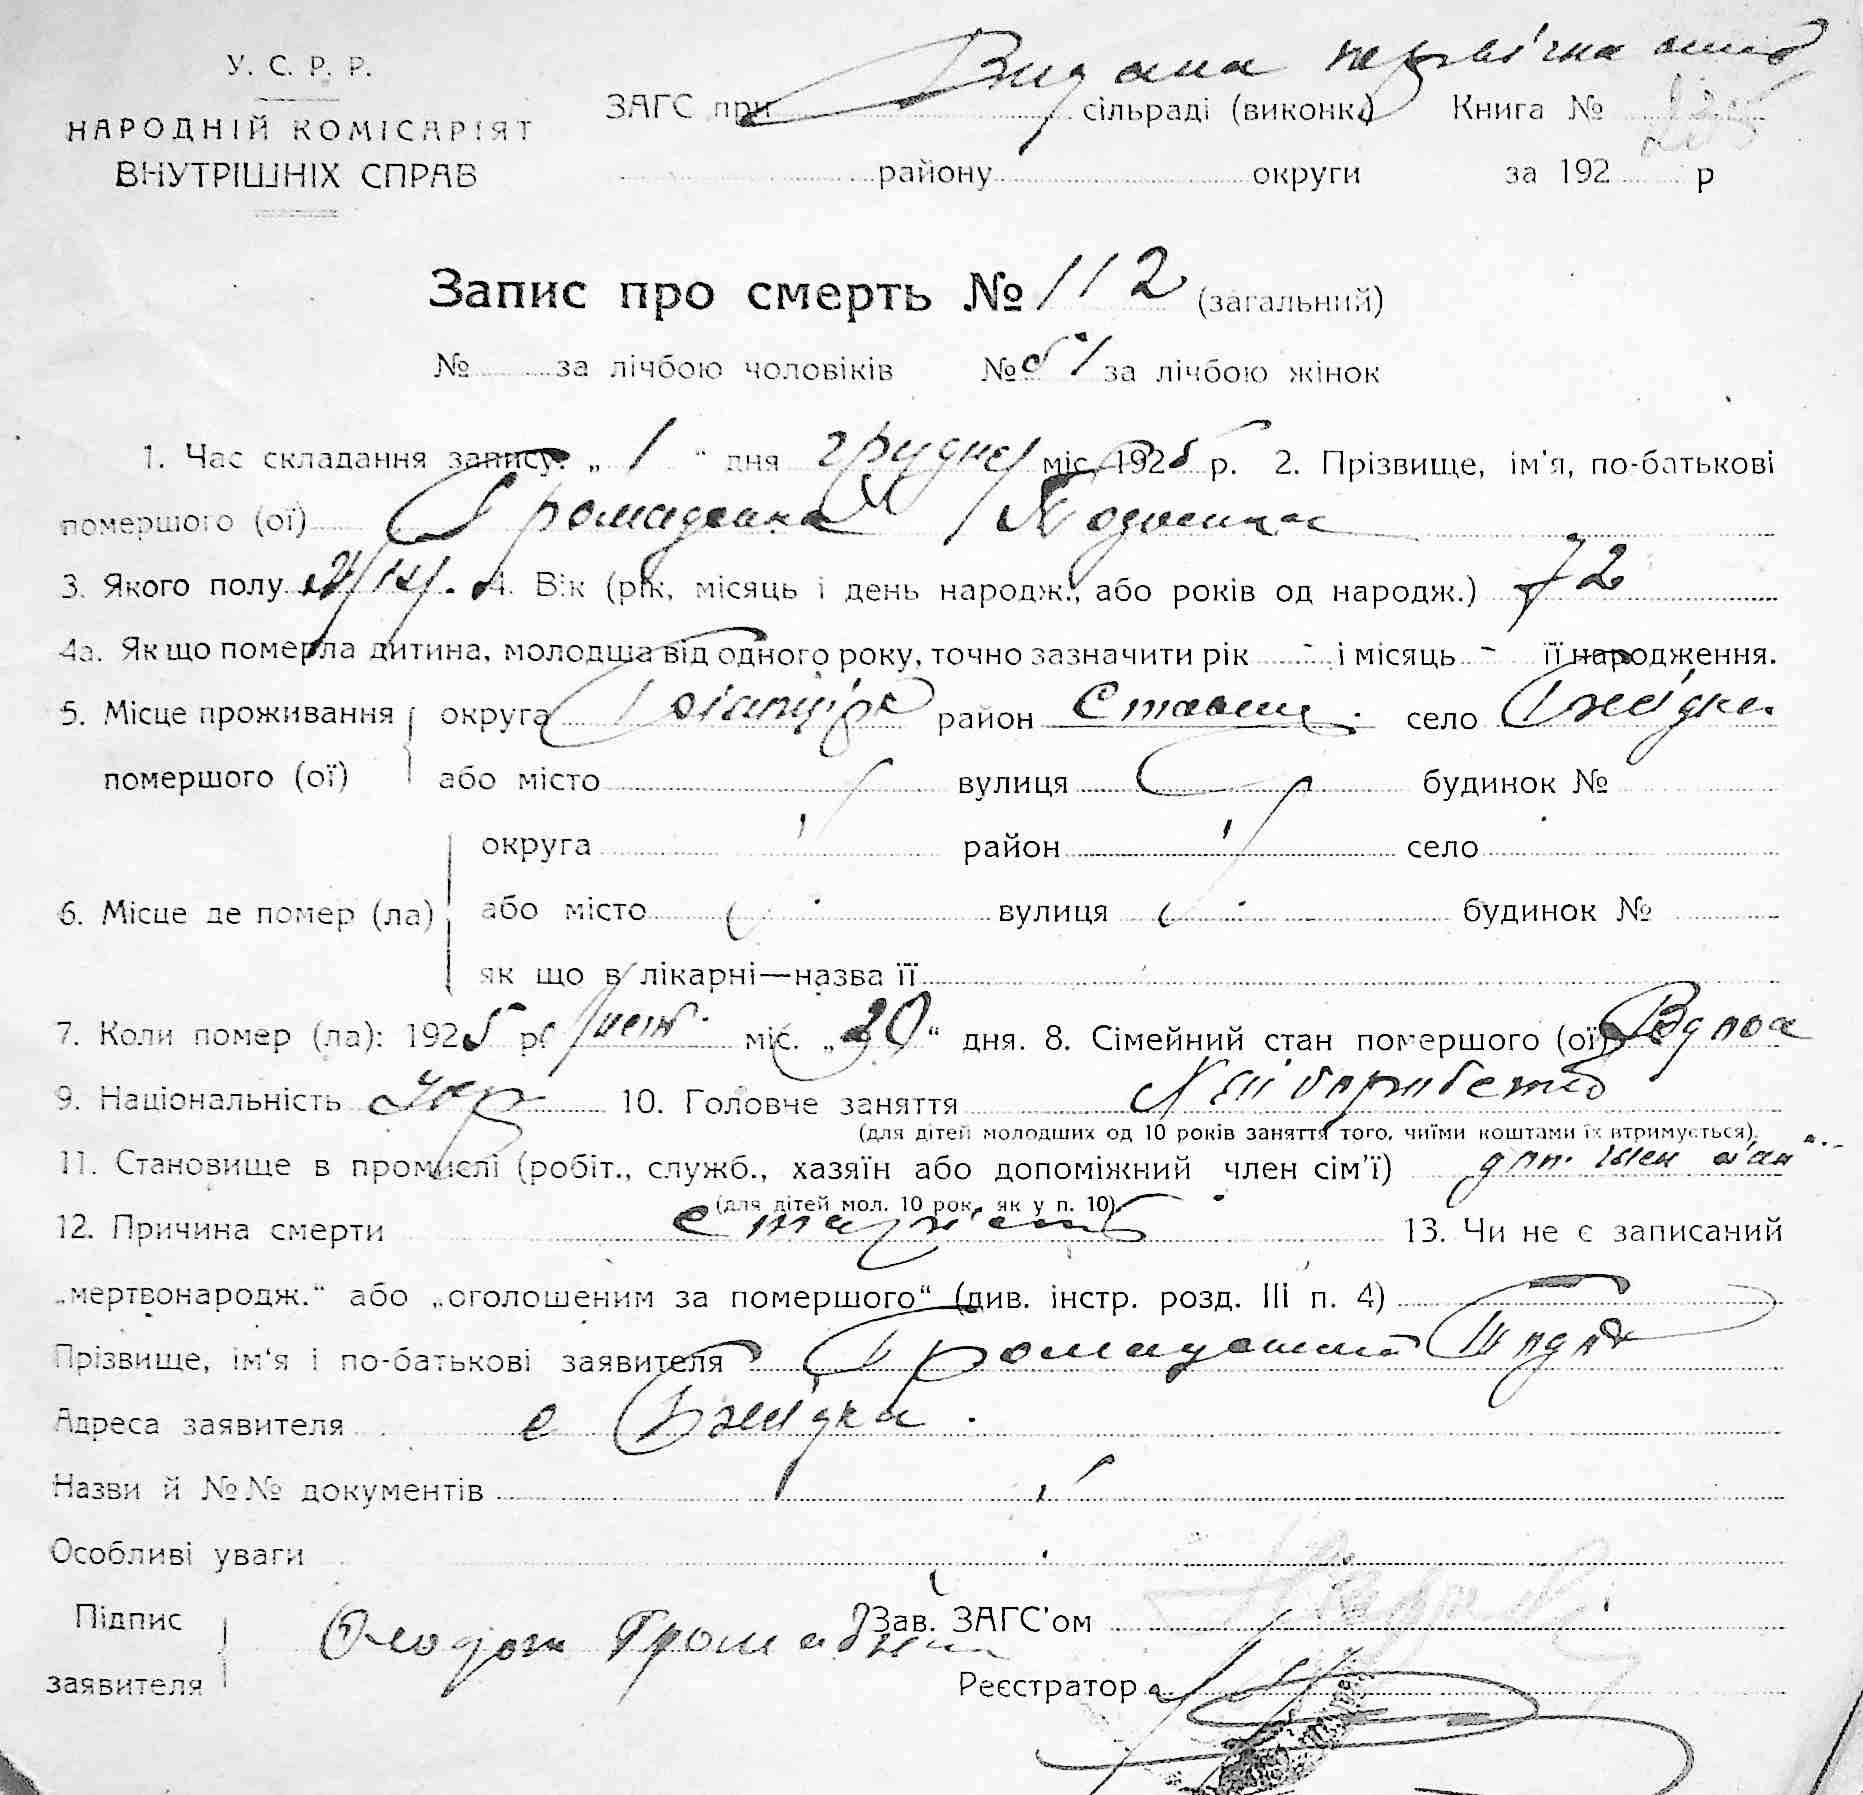 Видана первічна опис
У. С. Р. Р.
НАРОДНІЙ КОМІСАРІЯТ
ВНУТРІШНІХ СПРАВ
ЗАГС при сільраді (виконк.) Книга №
району округи за 192 р
Запис про смерть № 112 (загальний)
№ за лічбою чоловіків № 51 за лічбою жінок
1. Час складання запису: „ 1 " дня грудня міс. 1925 р. 2. Прізвище, ім'я, по-батькові
помершого (ої) Громадська
3. Якого полу 4. Вік (рік, місяць і день народж., або років од народж.) 72
4а. Як що померла дитина, молодша від одного року, точно зазначити рік - і місяць - її народження.
5. Місце проживання округа Білоцірк район Ставищ. село Бжідка
помершого (ої) або місто вулиця будинок №
округа район село
6. Місце де помер (ла) або місто вулиця будинок №
як що в лікарні—назва її
7. Коли помер (ла): 1925 р. міс. „30" дня. 8. Сімейний стан помершого (ої) Вдова
9. Національність Укр 10. Головне заняття Хліборобств
(для дітей молодших од 10 років заняття того, чиїми коштами їх втримується).
11. Становище в промислі (робіт., служб., хазяїн або допоміжний член сім'ї) доп. член
(для дітей мол. 10 рок, як у п. 10)
12. Причина смерти старість 13. Чи не є записаний
„мертвонародж." або „оголошеним за помершого" (див. інстр. розд. III п. 4)
Прізвище, ім'я і по-батькові заявителя Громадський
Адреса заявителя с Бжідка.
Назви й №№ документів
Особливі уваги
Підпис Зав. ЗАГС'ом
заявителя Реєстратор